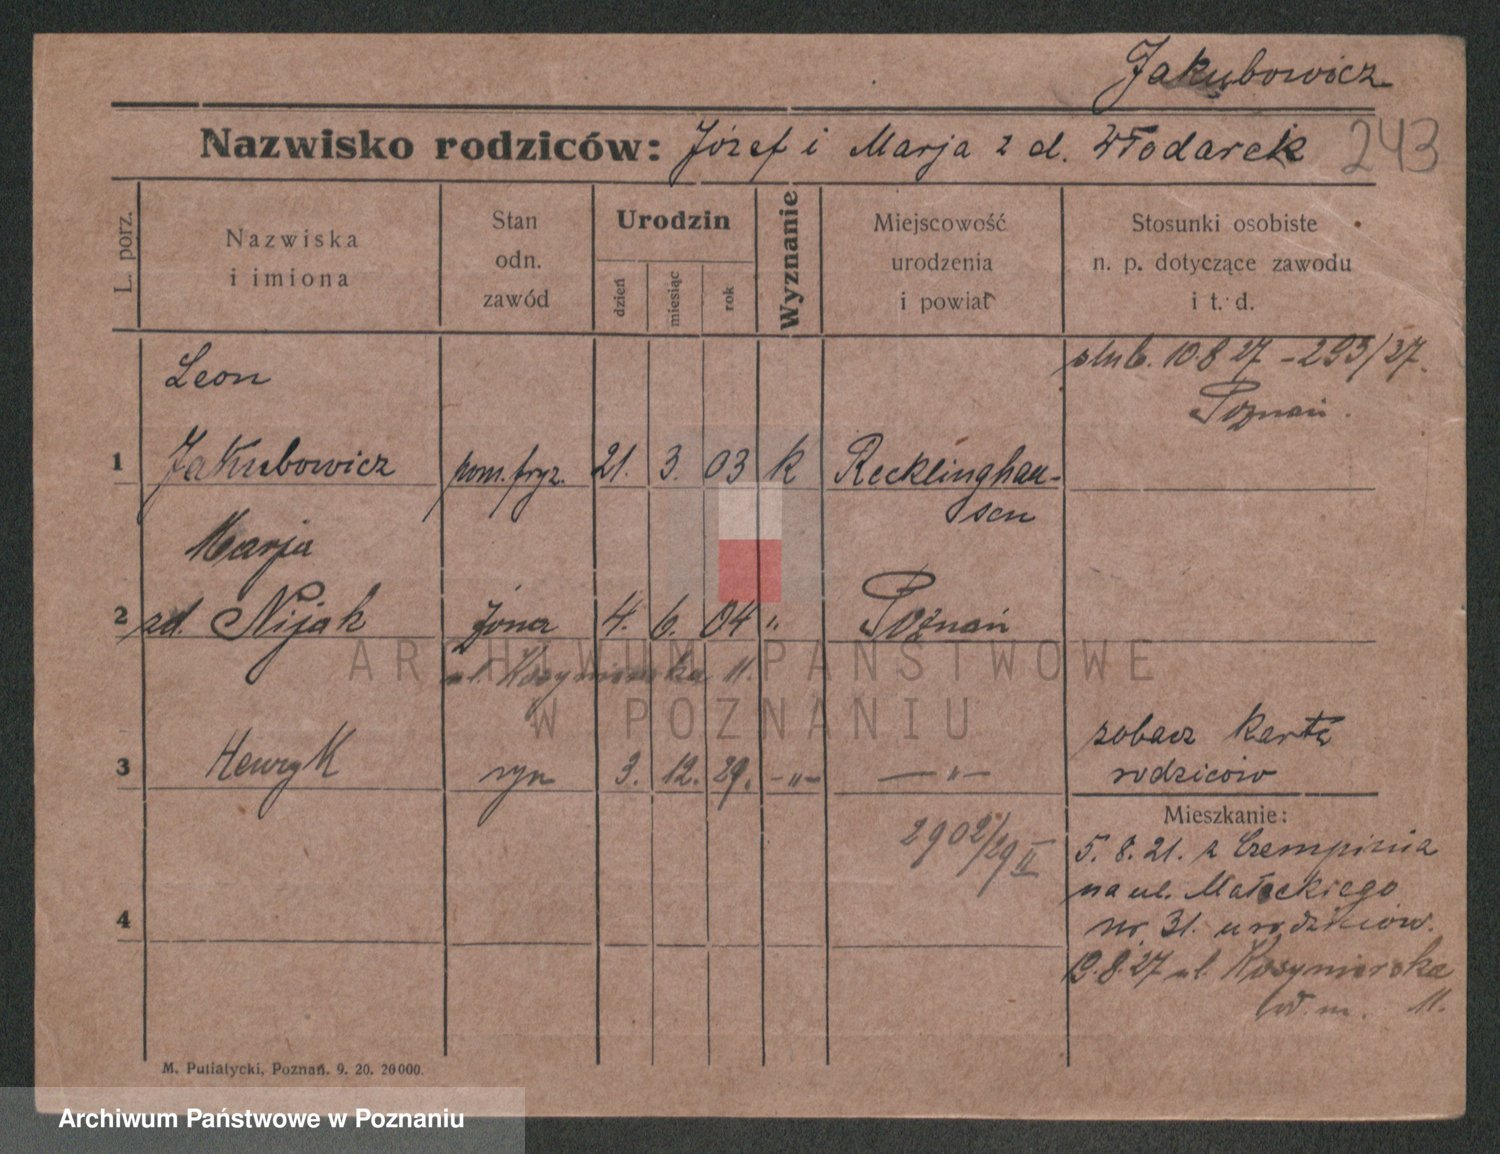 Jakubowicz
Nazwisko rodziców: Józef i Marja z d. Włodarek 243
L. porz.
Nazwiska
i imiona
Stan
odn.
zawód
Urodzin
dzień
miesiąc
rok
Wyznanie
Miejscowość
urodzenia
i powiat
Stosunki osobiste
n. p. dotyczące zawodu
i t. d.
ślub. 10.8 27 - 293/27.
Poznań.
Leon
1 Jakubowicz pom. fryz. 21. 3. 03 k Recklinghau-
sen
Marja
2 zd. Nijak żona 4. 6. 04 " Poznań
ul. 11.
3 Henryk syn 3. 12. 29. -"- -"-
zobacz kartę
rodziców
2902/29 II
Mieszkanie:
5. 8. 21. z Czempinia
na ul. Małeckiego
nr. 31. u rodziców.
4
19.8.27 ul.
11.
M. Putiatycki, Poznań. 9. 20. 20000.
ARCHIWUM PAŃSTWOWE
W POZNANIU
Archiwum Państwowe w Poznaniu